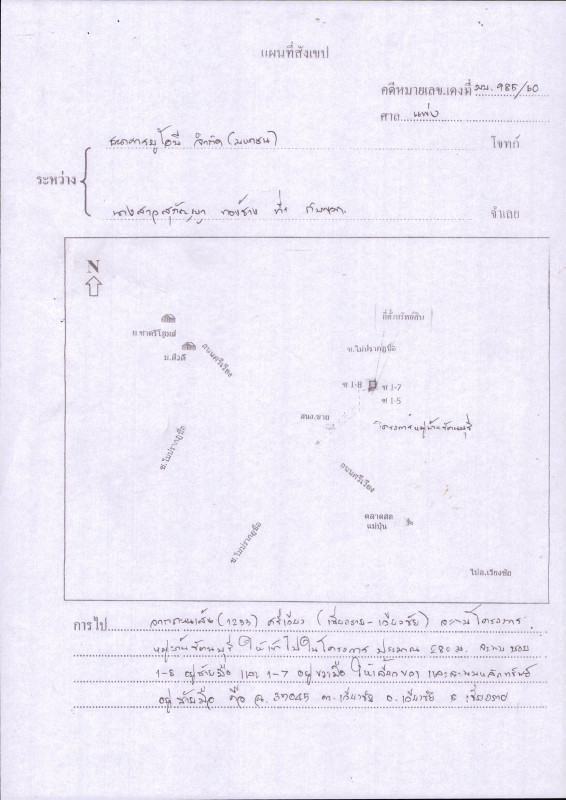 แผนที่สังเขป
คดีหมายเลขแดงที่ ผบ. 985/60
ศาล แพ่ง
ธนาคารยูโอบี จำกัด (มหาชน) โจทก์
ระหว่าง
นางสาวสุกัญญา ที่1 กับพวก จำเลย
N
ที่ตั้งทรัพย์สิน
ม.ชาตรีโฮมส์
ม.สิวลี
ถนนศรีเวียง
ซ.ไม่ปรากฏชื่อ
ซ 1-8
ซ 1-7
ซ 1-5
สนง.ขาย
โครงการหมู่บ้านชัดนบุรี
ซ.ไม่ปรากฏชื่อ
ถนนศรีเวียง
ตลาดสด
แม่ปุ่น
ซ.ไม่ปรากฏชื่อ
ไปอ.เวียงชัย
การไป จากถนนเส้น (1233) ศรีเวียง (เชียงราย - เวียงชัย) จะพบโครงการ
หมู่บ้านชัดนบุรี ให้เข้าไปในโครงการ ประมาณ 280 ม. จะพบ ซอย
1-8 อยู่ซ้ายมือ และ 1-7 อยู่ขวามือ ให้เลี้ยวขวา และจะพบหลักทรัพย์
อยู่ซ้ายมือ คือ ฉ. 37045 ต.เวียงชัย อ.เวียงชัย จ.เชียงราย